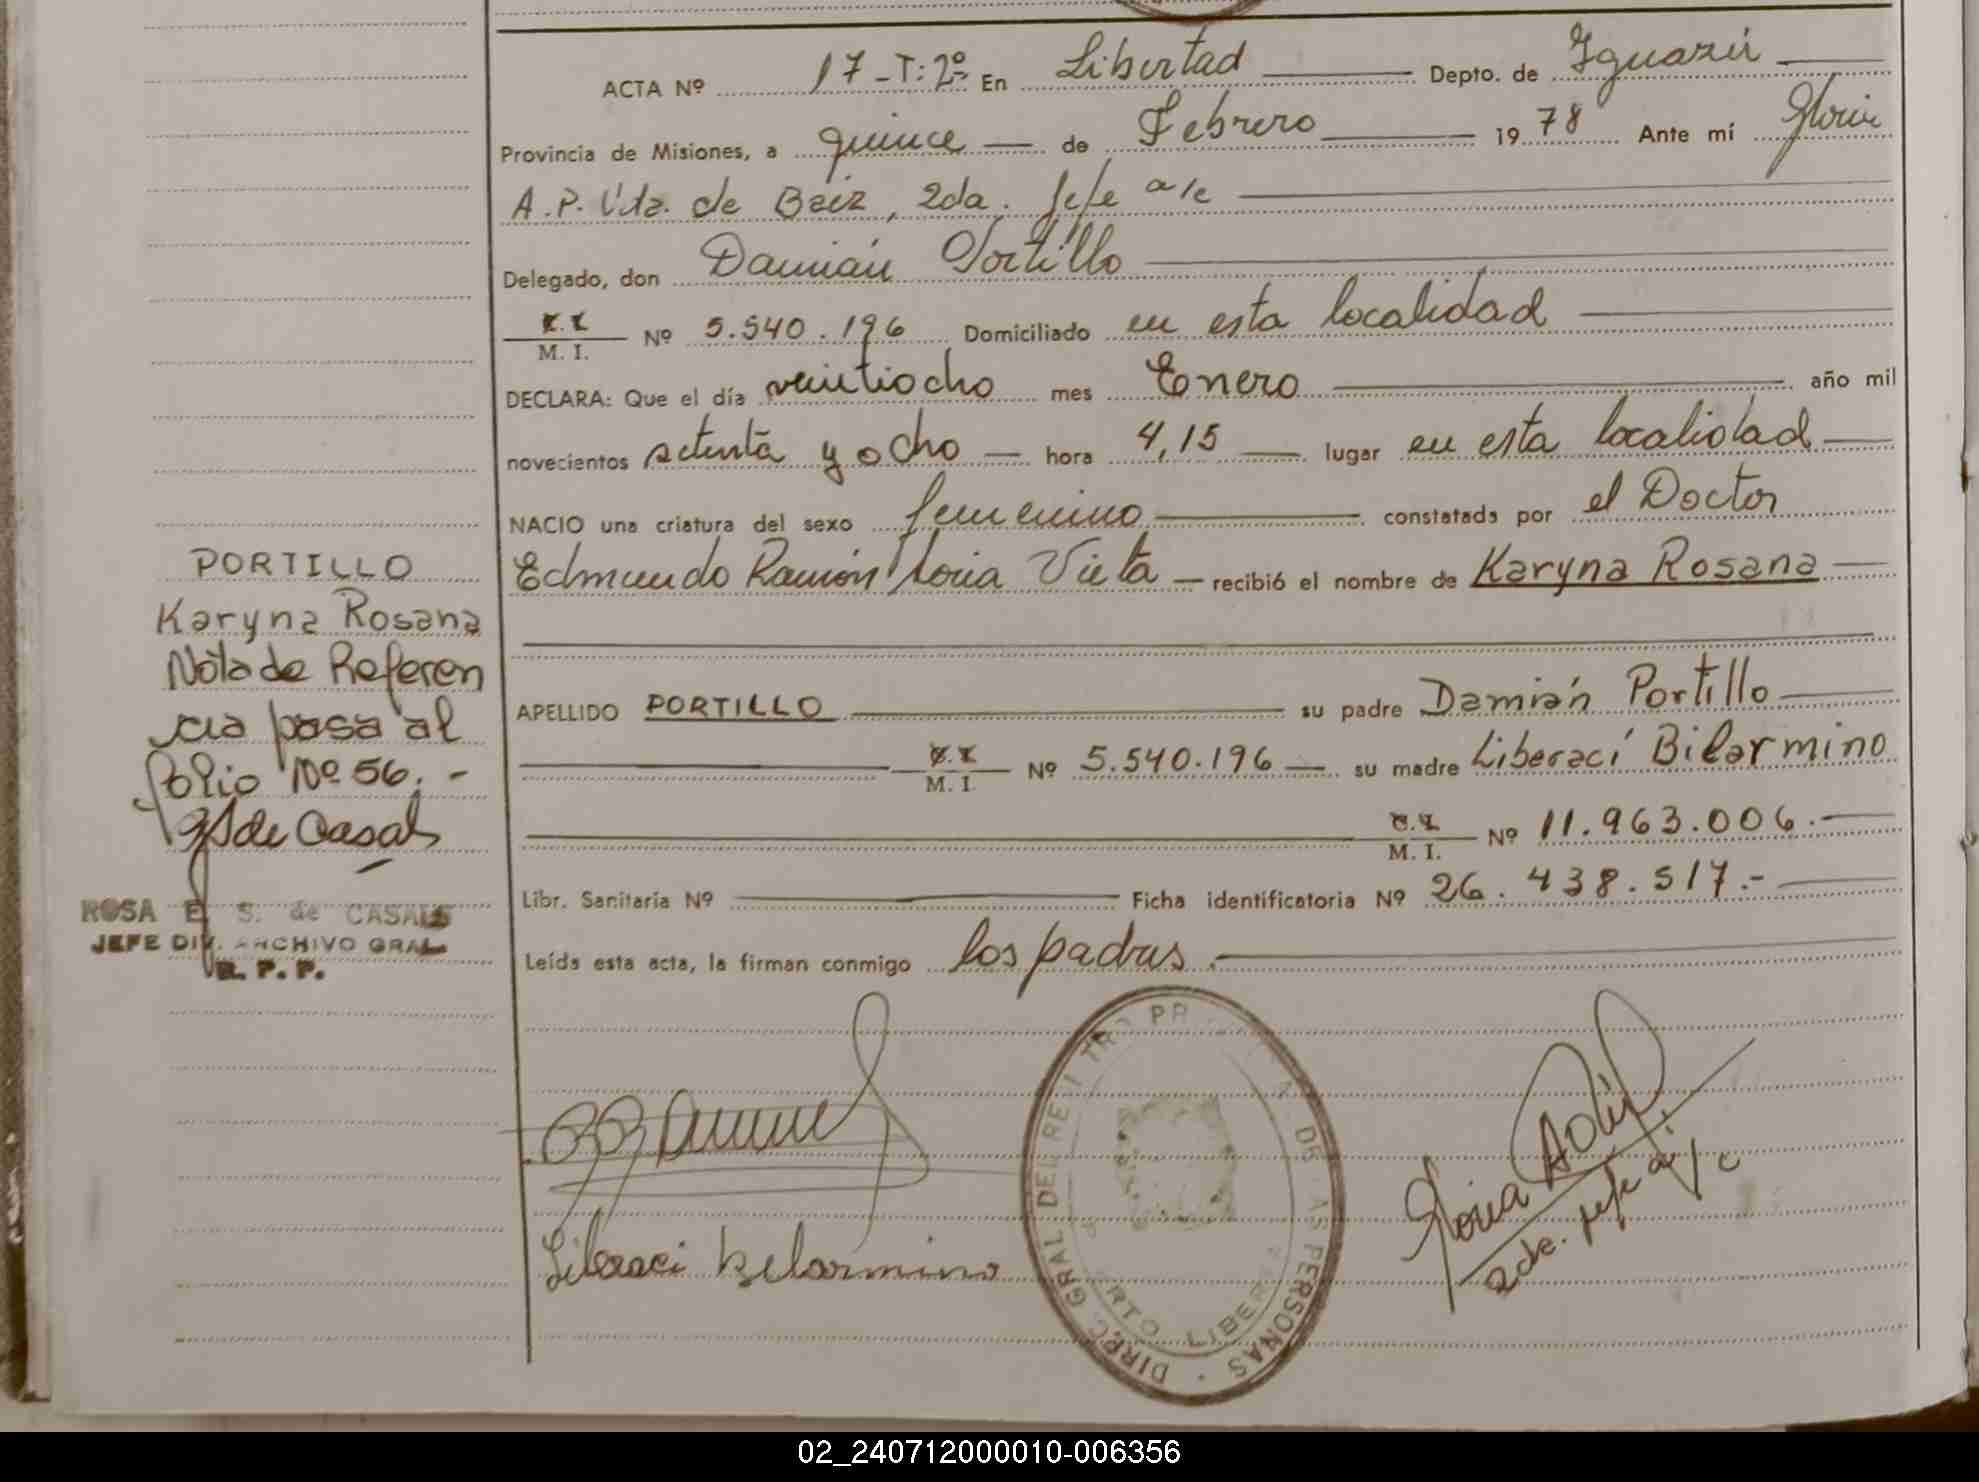 ACTA Nº 17-T:2º En Libertad Depto. de Iguazú
Provincia de Misiones, a quince de Febrero 1978 Ante mí Gloria
A.P. Vda. de Baez, 2da. Jefe a/c
Delegado, don Damián Portillo
M. I. Nº 5.540.196 Domiciliado en esta localidad
DECLARA: Que el día veintiocho mes Enero año mil
novecientos setenta y ocho hora 4,15 lugar en esta localidad
NACIO una criatura del sexo femenino constatada por el Doctor
Edmundo Ramón Vieta recibió el nombre de Karyna Rosana
APELLIDO PORTILLO su padre Damián Portillo
M. I. Nº 5.540.196 su madre Liberací Bilarmino
M. I. Nº 11.963.006.-
Libr. Sanitaria Nº Ficha identificatoria Nº 26.438.517.-
Leída esta acta, la firman conmigo los padres.
PORTILLO
Karyna Rosana
Nota de Referen
cia pasa al
folio Nº 56.-
de Casals
ROSA E. S. de CASALS
JEFE DIV. ARCHIVO GRAL.
R. P. P.
Liberaci Belarmino
DIREC. GRAL DEL REGISTRO PROVINCIAL DE LAS PERSONAS
PUERTO LIBERTAD
Gloria
2da. Jefe a/c
02_240712000010-006356